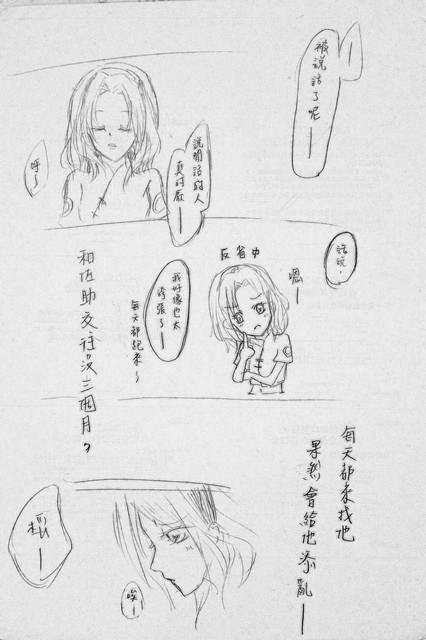 被說話了呢——
說閒話的人
真討厭——
呼～
話說，
反省中
嗯——
我好像也太
誇張了——
每天都記來～
和佐助交往沒三個月？
每天都來找他
果然會給他添亂——
唉——